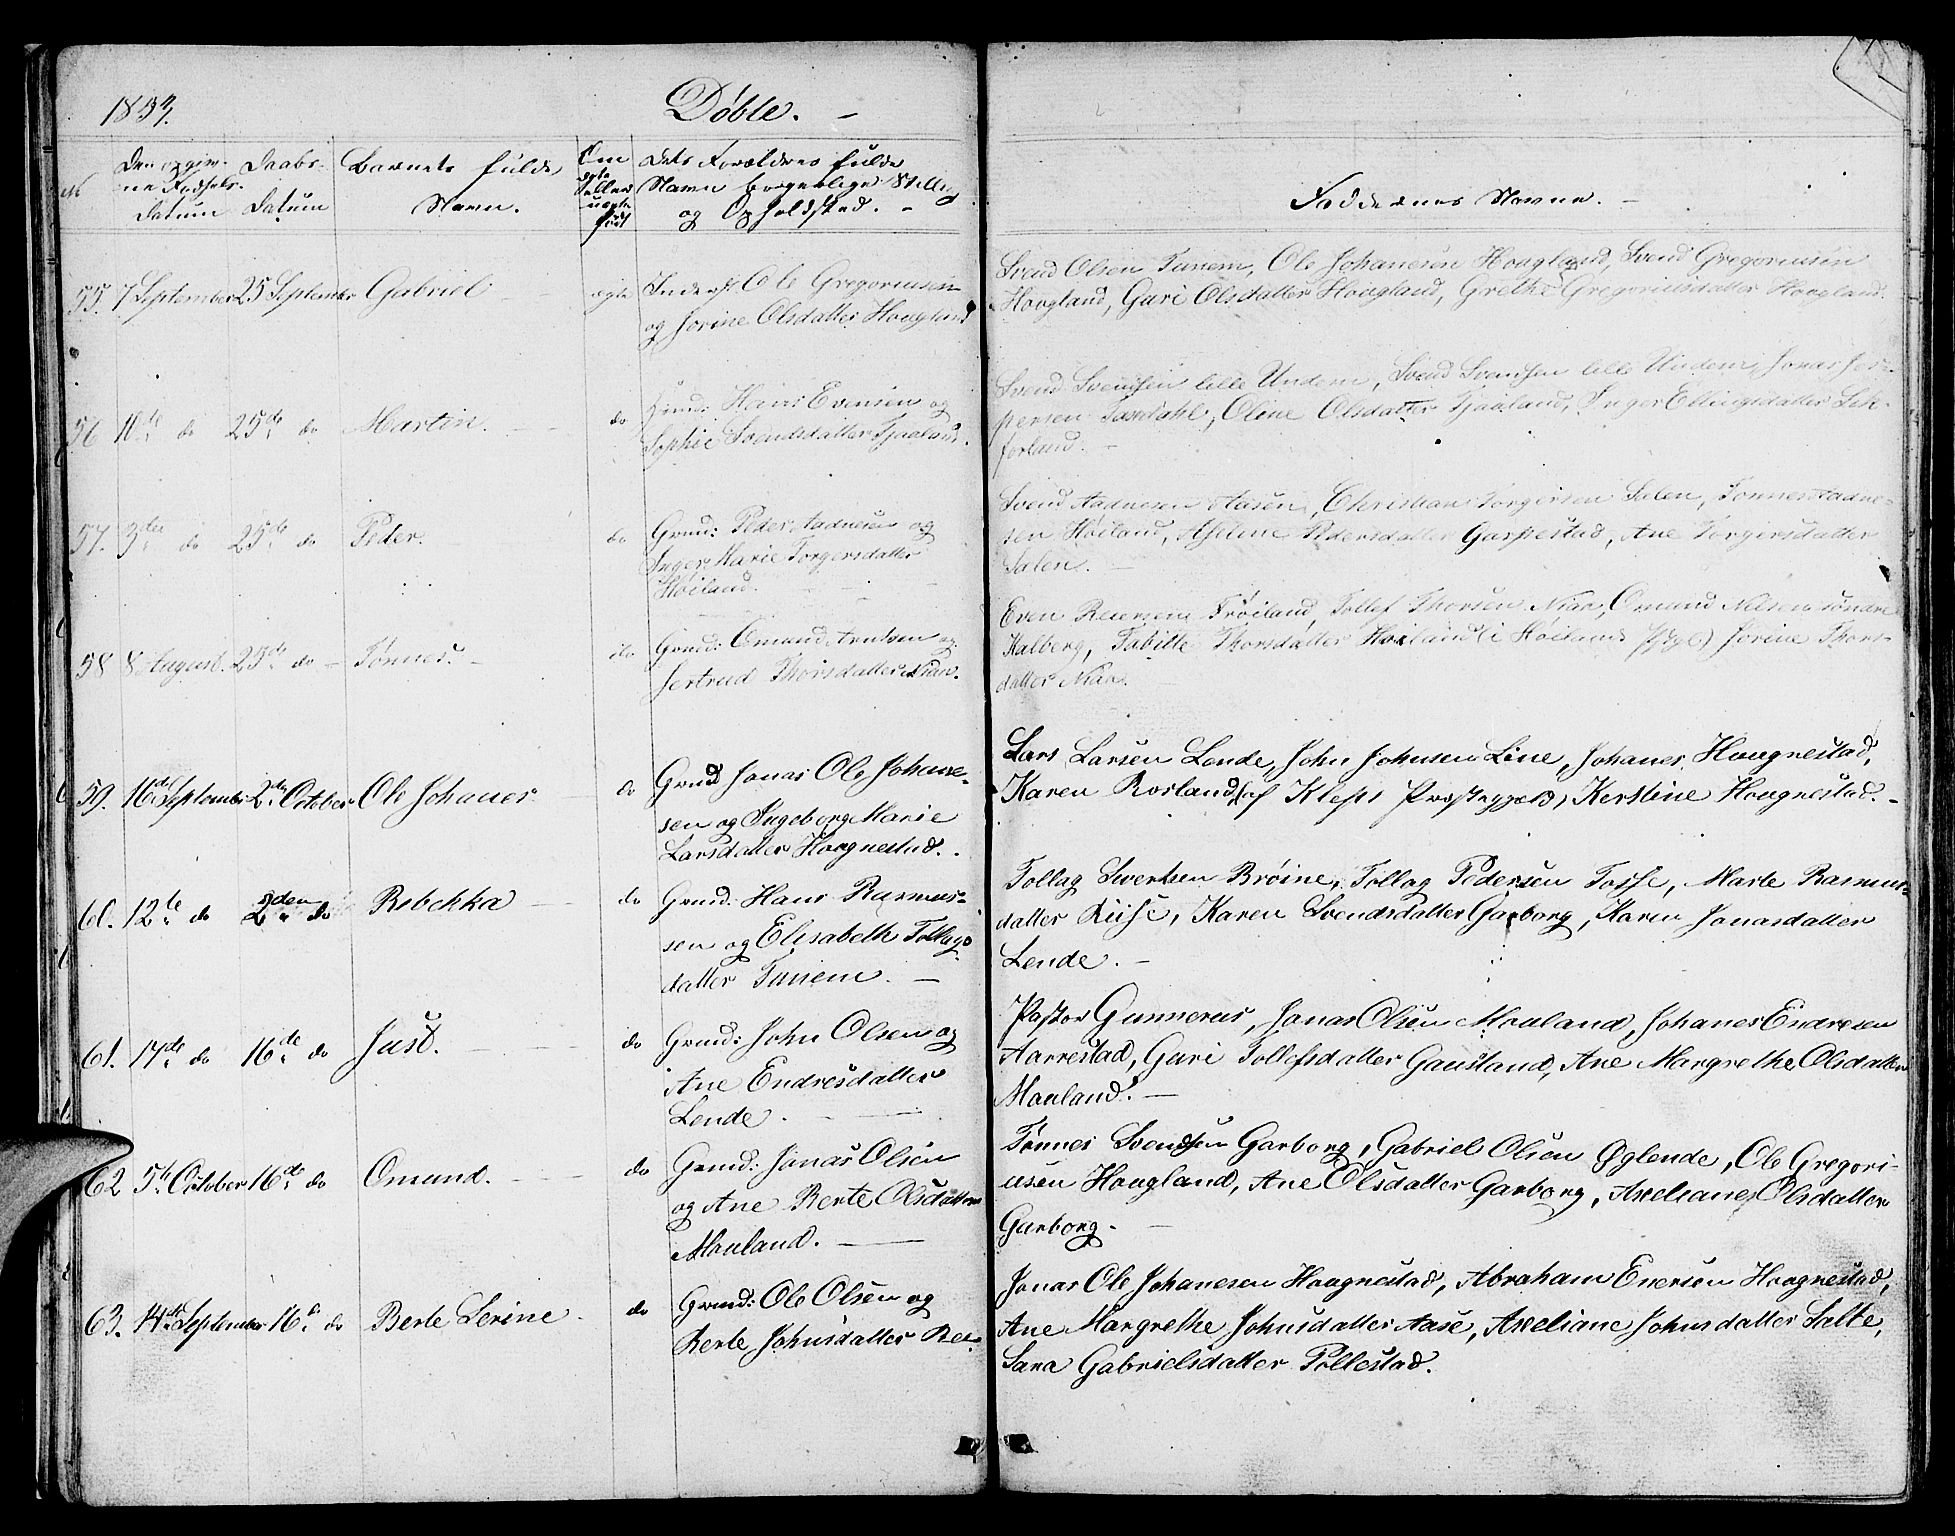 1853.
Døbte. -
№
Den opgiv-
ne Fødsels-
Datum
Daabs-
Datum
Barnets fulde
Navn.
Om
ægte
eller
uægte
født
Dets Forældres fulde
Navn borgerlige Stilling
og Opholdsted. -
Faddernes Navne. -
55. 7 September 25 September Gabriel ægte
Inderst Ole Gregoriusen
og Jorine Olsdatter Haagland
Svend Olsen Tunem, Ole Johanesen Haagland, Svend Gregoriusen
Haagland, Guri Olsdatter Haagland, Grethe Gregoriusdatter Haagland.
56 10de do 25de do Martin. do
Hans Evensen og
Sophie Svendsdatter Tjaaland.
Svend Svendsen lille Undem, Svend Svendsen lille Undem, Jonas Jes-
persen Taxdahl, Oline Olsdatter Tjaaland, Inger Ellingsdatter Sik-
forland. -
57. 3die do 25de do Peder. do
Grmd: Peder Aadnesen og
Inger Marie Torgersdatter
Høiland.
Svend Aadnesen Aasen, Christian Torgersen Salen, Tønnes Aadne-
sen Høiland, Aselene Pedersdatter Garpestad, Ane Torgersdatter
Salen. -
58 8 August. 25de do - Tønnes. - do
Grmd: Omund Arntsen og
Jertrud Thorsdatter Niar.
Even Reiersen Frøiland, Tollef Thorsen Niar, Omund Nilsen søndre
Kalberg, Tabitte Thorsdatter Høiland (i Høilands Pgl) Jorine Thors-
datter Niar.
59. 16de September 2den October Ole Johanes do
Grmd Jonas Ole Johane-
sen og Ingeborg Marie
Larsdatter Haagnestad.
Lars Larsen Lende, John Johnsen Line, Johanes Haagnestad,
Karen Rosland (af Kleps Præstegjæld) Kerstine Haagnestad. -
60. 12te do 2den do Rebekka do
Grmd: Hans Rasmus-
sen og Elisabeth Tollags
datter Tunem. -
Tollag Sivertsen Brøine, Tollag Pedersen Fosse, Marte Rasmus-
datter Riise, Karen Svendsdatter Garborg, Karen Jonasdatter
Lende. -
61. 17de do 16de do Just. do
Grmd: John Olsen og
Ane Endresdatter
Lende.
Pastor Gunnerus, Jonas Olsen Mauland, Johanes Endresen
Aarrestad, Guri Tollefsdatter Gausland, Ane Margrethe Olsdatter
Mauland. -
62 5te October 16de do Omund. do
Grmd: Jonas Olsen
og Ane Berte Olsdatter
Mauland. -
Tønnes Svendsen Garborg, Gabriel Olsen Øglende, Ole Gregori-
usen Haagland, Ane Olsdatter Garborg, Axeliane Olsdatter
Garborg. -
63. 14de September 16de do Berte Serine. do
Grmd: Ole Olsen og
Berte Johnsdatter Ree.
Jonas Ole Johanesen Haagnestad, Abraham Enersen Haagnestad,
Ane Margrethe Johnsdatter Aase, Axeliane Johnsdatter Salte,
Sara Gabrielsdatter Pollestad.